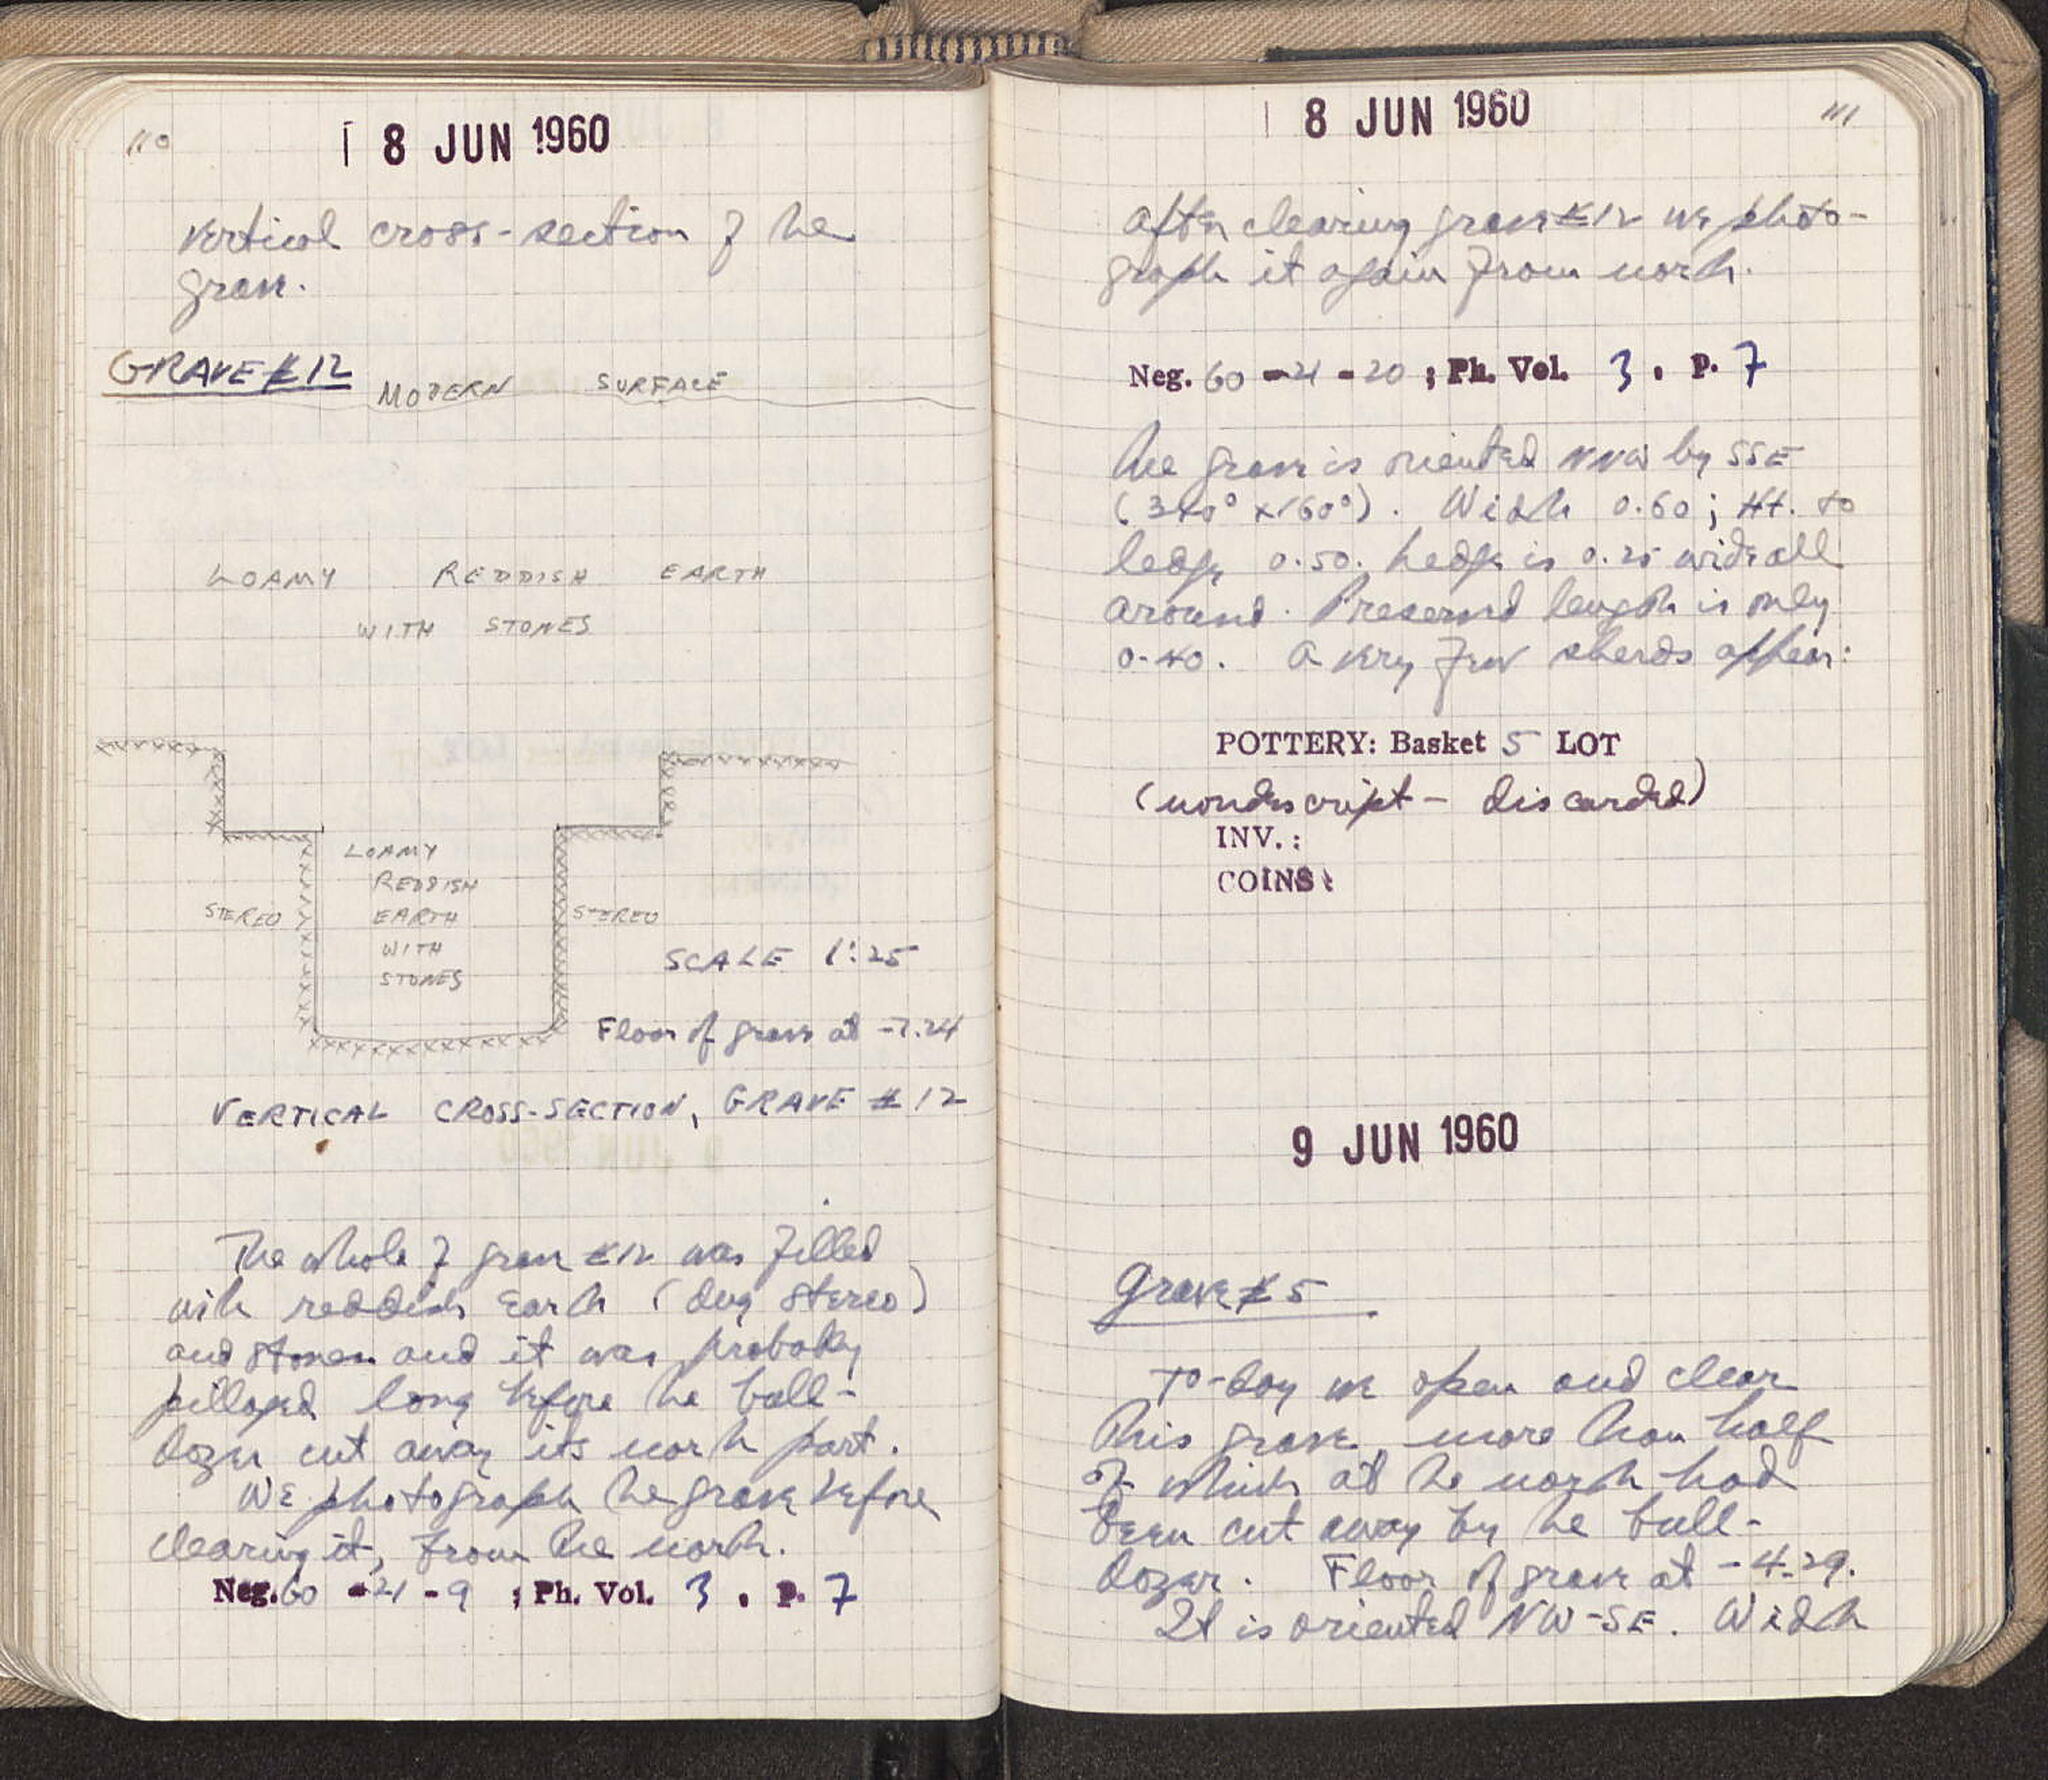 110
8 JUN 1960
Vertical cross-section of the
grave.
GRAVE #12
MODERN SURFACE
LOAMY REDDISH EARTH
WITH STONES
LOAMY
REDDISH
EARTH
WITH
STONES
STEREO
STEREO
SCALE 1:25
Floor of grave at -7.24
VERTICAL CROSS-SECTION, GRAVE #12
The whole of grave #12 was filled
with reddish earth (dug stereo)
and stones and it was probably
pillaged long before the bull-
dozer cut away its north part.
We photograph the grave before
clearing it, from the north.
Neg. 60 - 21 - 9 ; Ph. Vol. 3 . P. 7
111
8 JUN 1960
After clearing grave #12 we photo-
graph it again from north.
Neg. 60 - 21 - 20 ; Ph. Vol. 3 . P. 7
The grave is oriented NNW by SSE
(340° x 160°). Width 0.60; Ht. to
ledge 0.50. Ledge is 0.25 wide all
around. Preserved length is only
0.40. A very few sherds appear:
POTTERY: Basket 5 LOT
(nondescript - discarded)
INV.:
COINS:
9 JUN 1960
Grave #5
To-day we open and clear
this grave, more than half
of which at the north had
been cut away by the bull-
dozer. Floor of grave at -4.29.
It is oriented NW-SE. Width